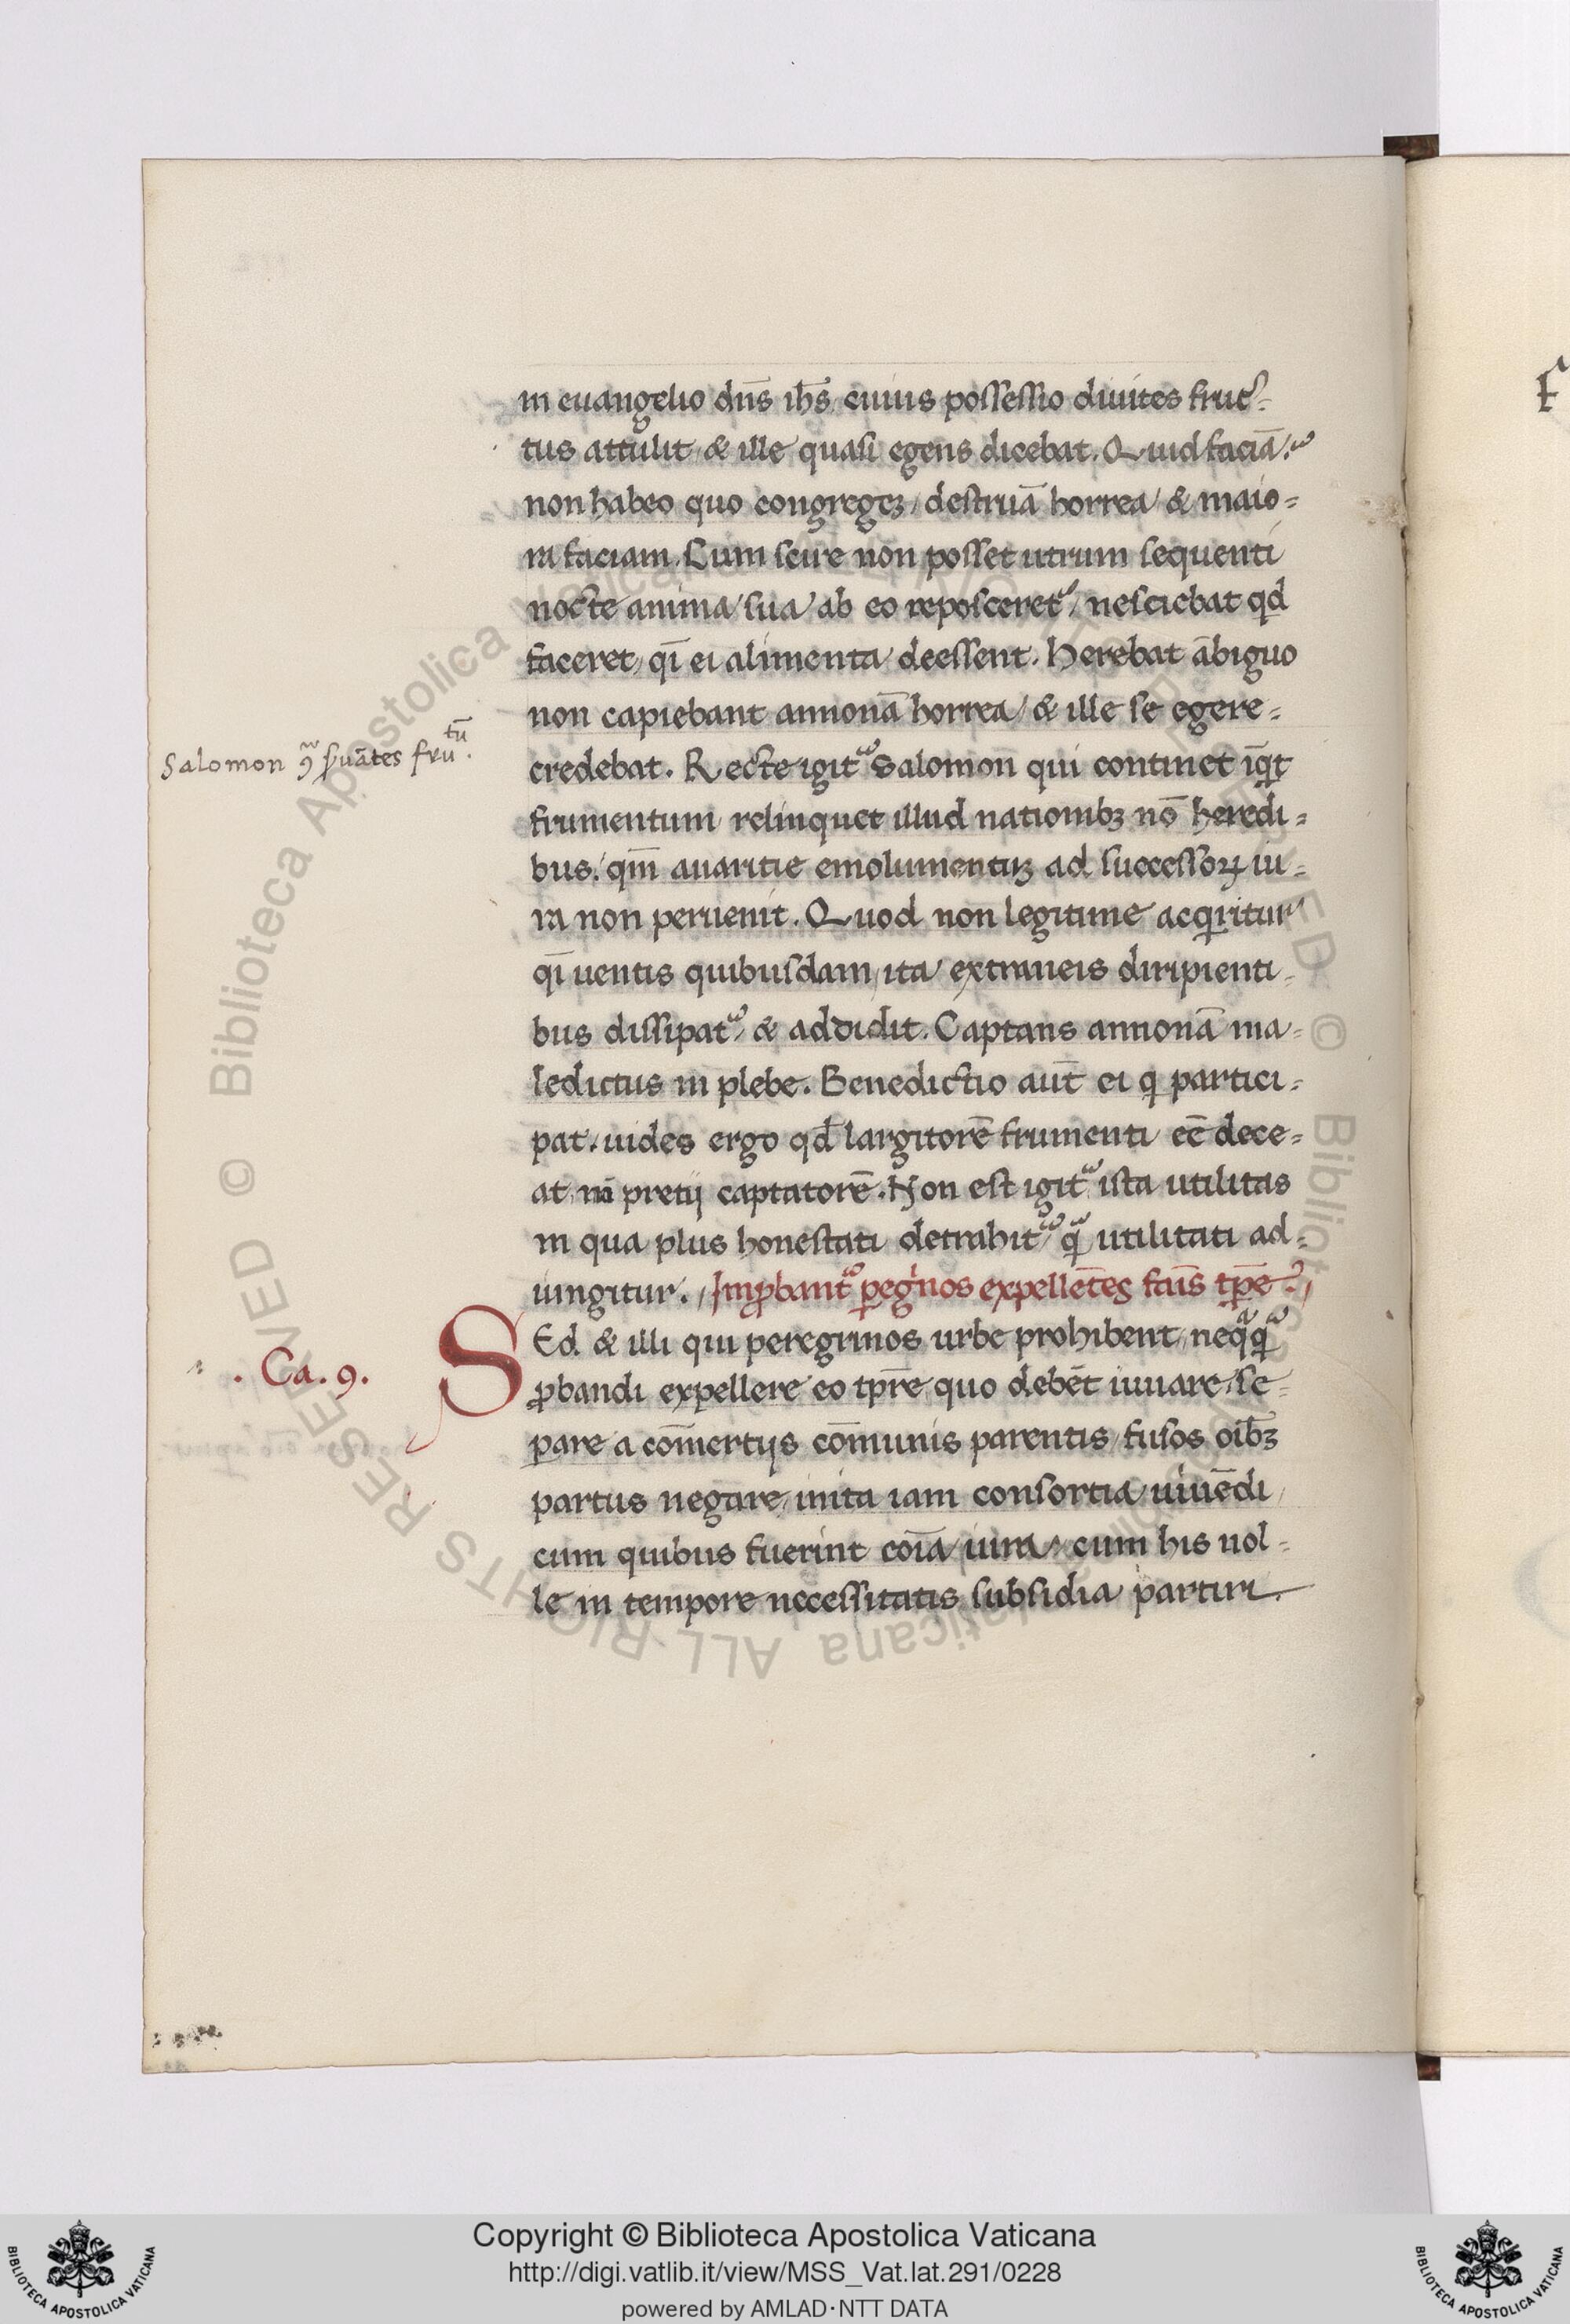 in euangelio dn̄s ih̄s cuius possessio diuites fruc-
tus attulit, & ille quasi egens dicebat. Quid faciā?
non habeo quo congregeʒ, destruā horrea, & maio=
ra faciam. Cum scire non posset utrum sequenti
nocte anima sua ab eo reposceretᷣ, nesciebat qd
faceret, qī ei alimenta deessent. Herebat ābiguo
non capiebant annonā horrea, & ille se egere=
Salomon ꝯ̃ ẜuātes frutū.
credebat. Recte igitᷣ Salomon qui continet īqt
frumentum relinquet illud nationibʒ nō heredi=
bus: qm̄ auaritie emolumentuʒ ad successoꝝ iu=
ra non peruenit. Quod non legitime acqritur
qī uentis quibusdam, ita extraneis diripienti=
bus dissipatᷣ, & addidit. Captans annonā ma=
ledictus in plebe. Benedictio aut̄ ei q partici=
pat. uides ergo qd̄ largitorē frumenti eē dece=
at, nō pretij captatorē. Non est igitᷣ ista utilitas
in qua plus honestati detrahitᷣ, qᷓ utilitati ad=
iungitur. Imꝓbantᷣ ꝑegͥnos expellētes famis tp̄e.
. Ca. 9.
SEd & illi qui peregrinos urbe prohibent, neqᷓqᷓ
ꝓbandi expellere eo tp̄re quo debēt iuuare, se=
pare a cōmertijs cōmunis parentis, fusos oīb̄ʒ
partus negare, inita iam consortia uiuēdi
cum quibus fuerint coīa iura, cum his nol=
le in tempore necessitatis subsidia partiri.
Copyright © Biblioteca Apostolica Vaticana
http://digi.vatlib.it/view/MSS_Vat.lat.291/0228
powered by AMLAD·NTT DATA
BIBLIOTECA APOSTOLICA VATICANA
BIBLIOTECA APOSTOLICA VATICANA